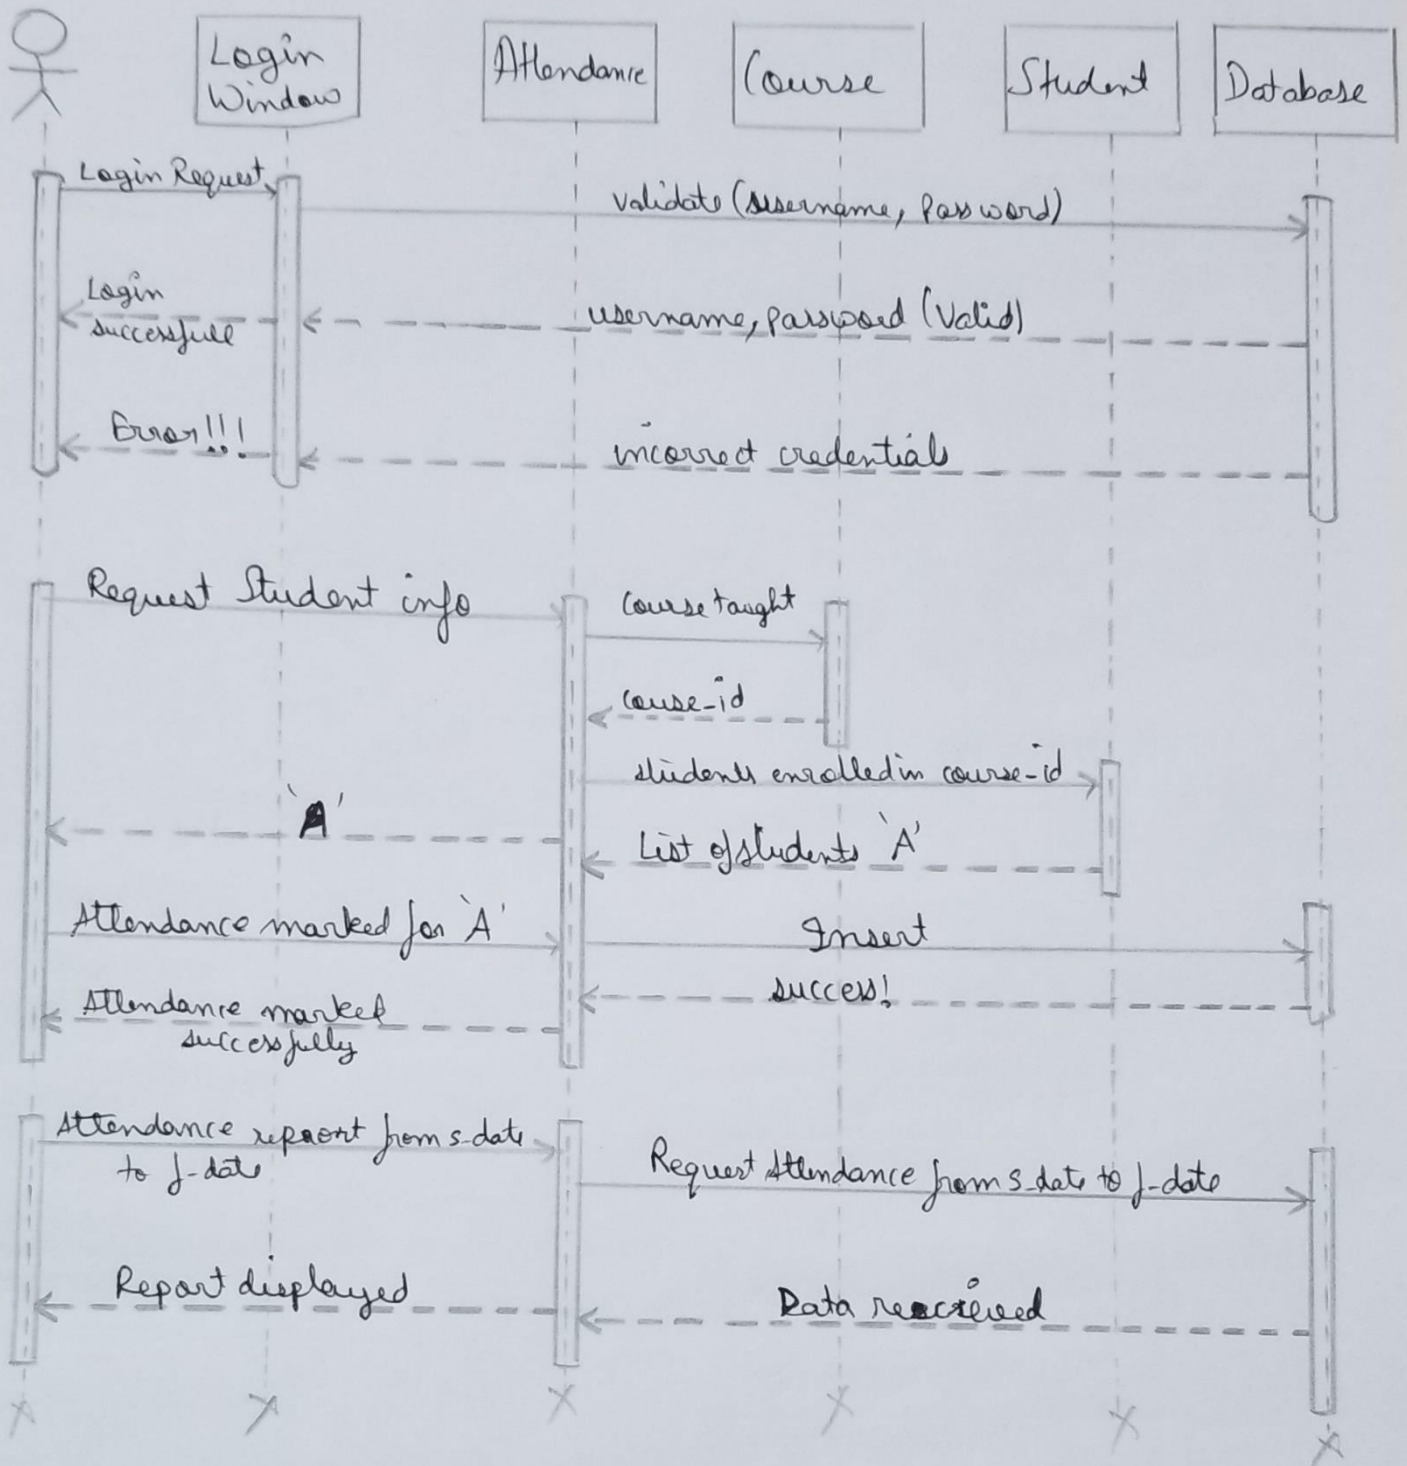 Login
Window
Attendance
Course
Student
Database
Login Request
validate (username, Password)
Login
successfull
username, password (Valid)
Error!!!
incorrect credentials
Request Student info
Course taught
couse-id
students enrolled in course-id
'A'
List of students 'A'
Attendance marked for 'A'
Insert
success!
Attendance marked
successfully
Attendance report from s-date
to f-date
Request Attendance from s-date to f-date
Report displayed
Data